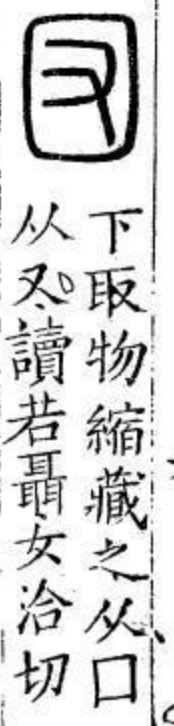 囡
下取物縮藏之从囗
从又讀若聶女洽切